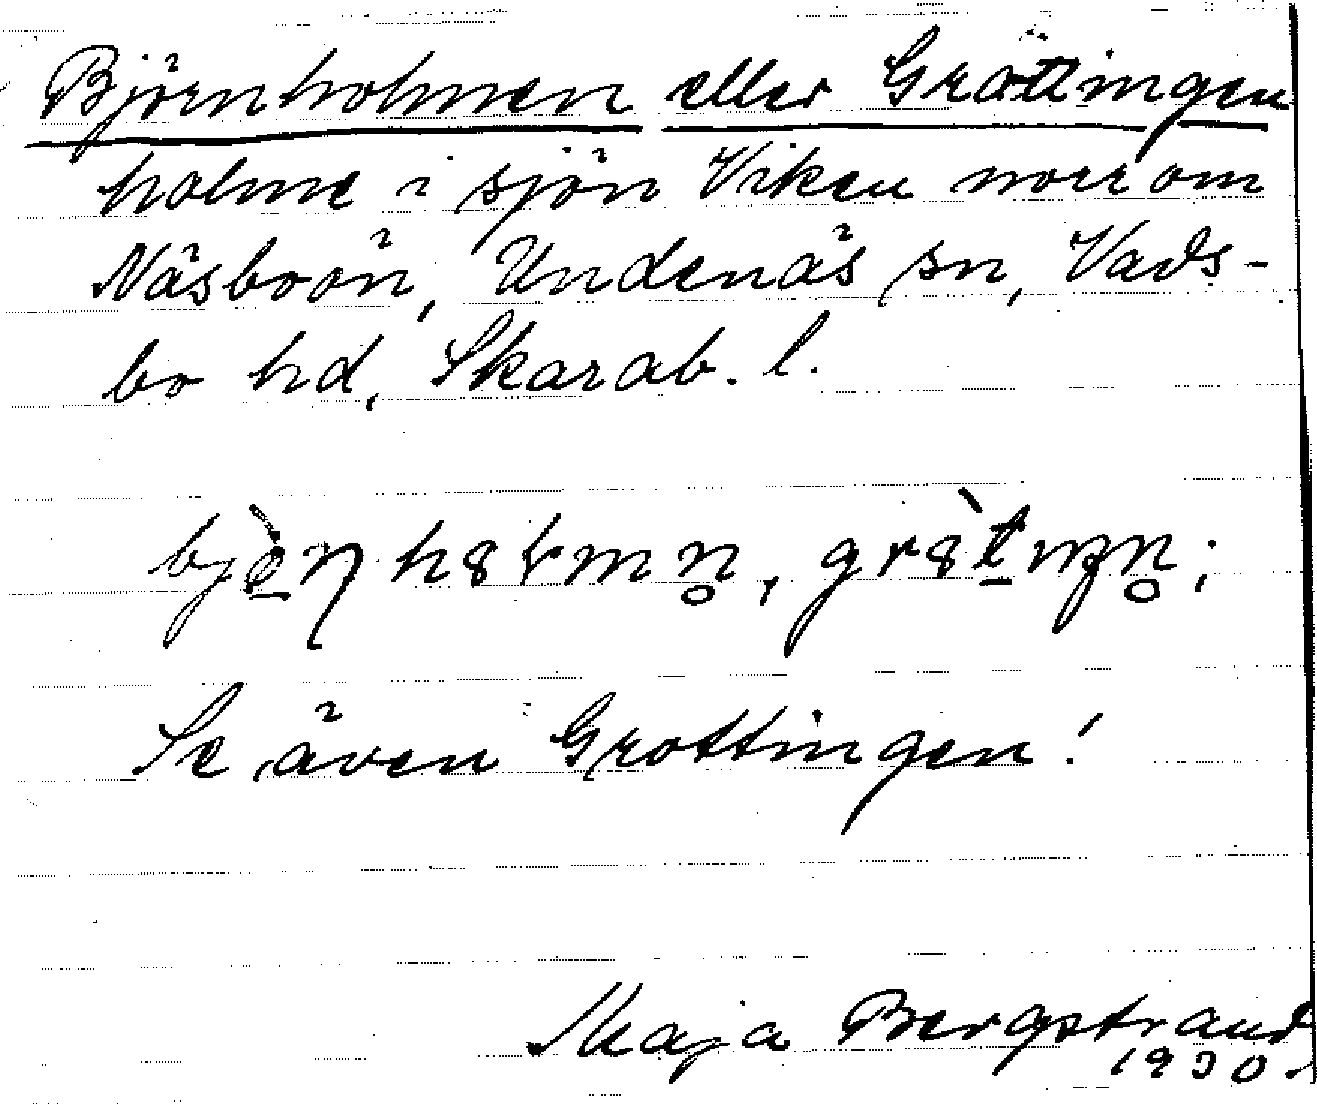 Björnholmen eller Gröttingen
holme i sjön Viken norr om
Näsboön, Undenäs sn, Vads-
bo hd, Skarab. l.
Se även Grottingen!
Maja Bergstrand
1930.